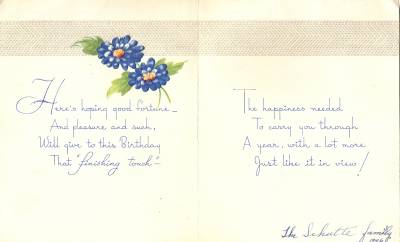 Here's hoping good fortune—
And pleasure and such,
Will give to this Birthday
That "finishing touch"—
The happiness needed
To carry you through
A year, with a lot more
Just like it in view!
The Schutte family